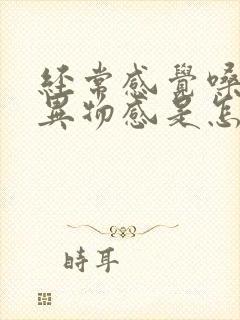 經常感覺嗓
異物感是怎
時耳